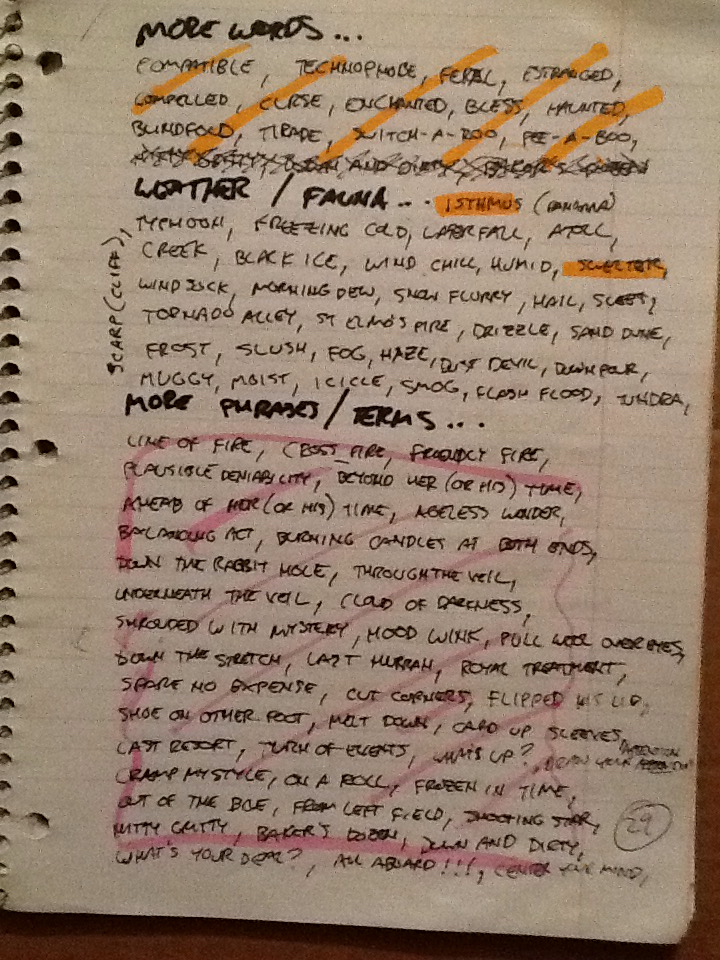 MORE WORDS...
COMPATIBLE, TECHNOPHOBE, FERAL, ESTRANGED,
COMPELLED, CURSE, ENCHANTED, BLESS, HAUNTED,
BLINDFOLD, TIRADE, SWITCH-A-ROO, PEE-A-BOO,
WEATHER / FAUNA... ISTHMUS (PANAMA)
TYPHOON, FREEZING COLD, WATERFALL, ATOLL,
CREEK, BLACK ICE, WIND CHILL, HUMID,
WINDSOCK, MORNING DEW, SNOW FLURRY, HAIL, SLEET,
TORNADO ALLEY, ST ELMO'S FIRE, DRIZZLE, SAND DUNE,
FROST, SLUSH, FOG, HAZE, DUST DEVIL, DOWNPOUR,
MUGGY, MOIST, ICICLE, SMOG, FLASH FLOOD, TUNDRA,
SCARP (CLIFF),
MORE PHRASES / TERMS...
LINE OF FIRE, CROSS FIRE, FRIENDLY FIRE,
PLAUSIBLE DENIABILITY, BEYOND HER (OR HIS) TIME,
AHEAD OF HER (OR HIS) TIME, AGELESS WONDER,
BALANCING ACT, BURNING CANDLES AT BOTH ENDS,
DOWN THE RABBIT HOLE, THROUGH THE VEIL,
UNDERNEATH THE VEIL, CLOUD OF DARKNESS,
SHROUDED WITH MYSTERY, HOOD WINK, PULL WOOL OVER EYES,
DOWN THE STRETCH, LAST HURRAH, ROYAL TREATMENT,
SPARE NO EXPENSE, CUT CORNERS, FLIPPED HIS LID,
SHOE ON OTHER FOOT, MELT DOWN, CARD UP SLEEVES,
LAST RESORT, TURN OF EVENTS, WHAT'S UP?, DRAW YOUR ATTENTION
CRAMP MY STYLE, ON A ROLL, FROZEN IN TIME,
OUT OF THE BLUE, FROM LEFT FIELD, SHOOTING STAR,
NITTY GRITTY, BAKER'S DOZEN, DOWN AND DIRTY,
29
WHAT'S YOUR DEAL?, ALL ABOARD!!!, CENTER YOUR MIND,